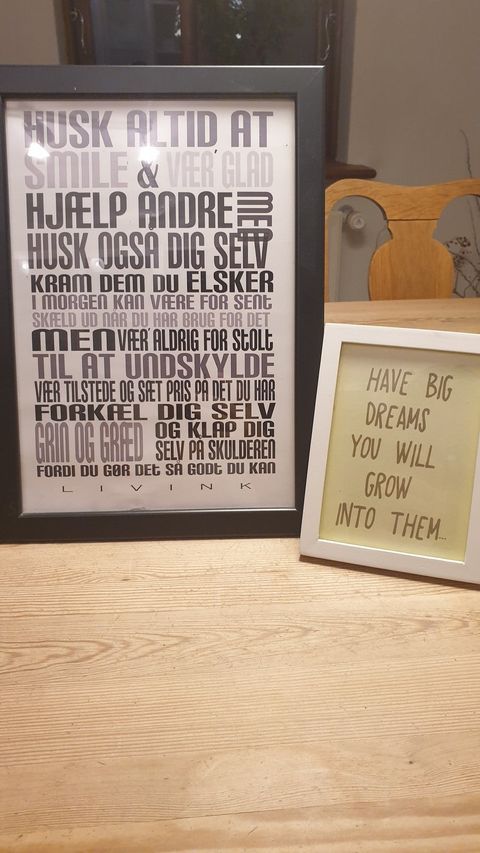 HUSK ALTID AT
SMILE & VÆR GLAD
HJÆLP ANDRE MEN
HUSK OGSÅ DIG SELV
KRAM DEM DU ELSKER
I MORGEN KAN VÆRE FOR SENT
SKÆLD UD NÅR DU HAR BRUG FOR DET
MEN VÆR ALDRIG FOR STOLT
TIL AT UNDSKYLDE
VÆR TILSTEDE OG SÆT PRIS PÅ DET DU HAR
FORKÆL DIG SELV
GRIN OG GRÆD OG KLAP DIG
SELV PÅ SKULDEREN
FORDI DU GØR DET SÅ GODT DU KAN
LIVINK
HAVE BIG
DREAMS
YOU WILL
GROW
INTO THEM...